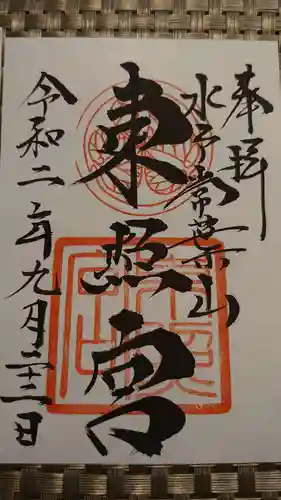 奉拝
水戸常葉山
東照宮
令和二年九月二十二日